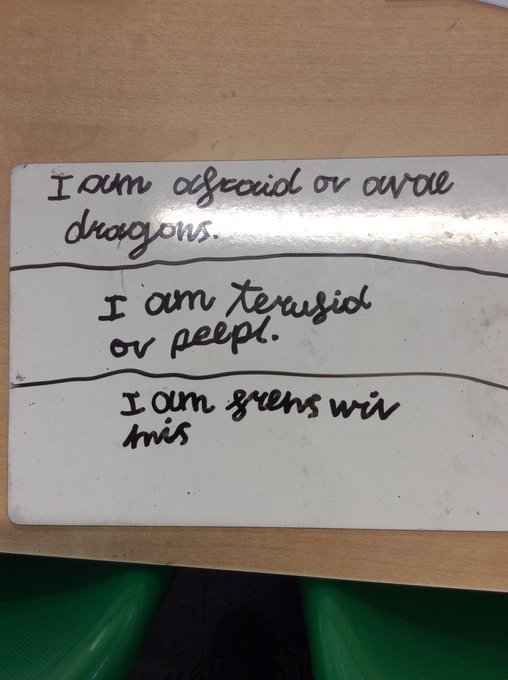 I am afraid ov avae
dragons.
I am terufid
ov peepl.
I am frens wiv
mis